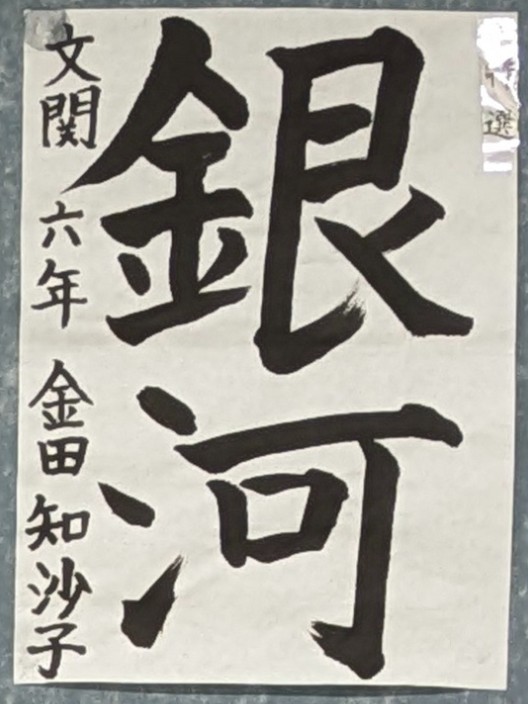 選
銀河
文関 六年 金田知沙子